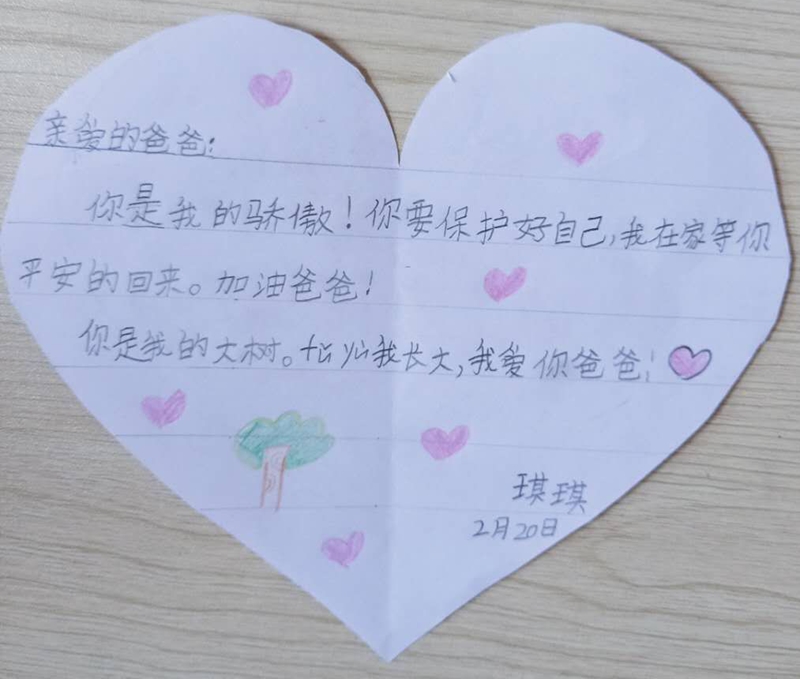 亲爱的爸爸:
你是我的骄傲!你要保护好自己,我在家等你
平安的回来。加油爸爸!
你是我的大树。 我长大,我爱你爸爸!
琪琪
2月20日